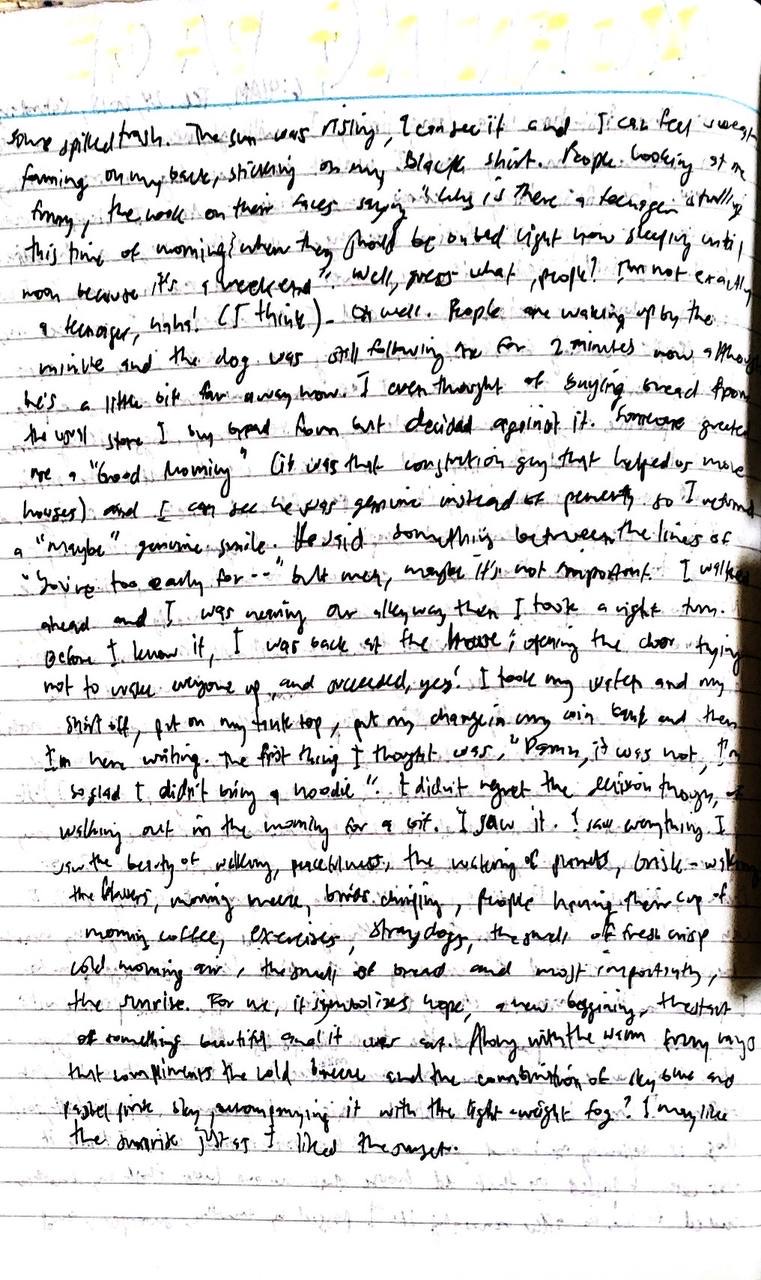 some spilled trash. The sun was rising, I can see it and I can feel sweat
forming on my back, sticking on my Black shirt. People looking at me
funny, the look on their faces saying "Why is there a teenager strolling
this time of morning? when they should be on bed right now sleeping until
noon because it's a weekend". Well, guess what, people? I'm not exactly
a teenager, haha! (I think). Oh well. People are waking up by the
minute and the dog was still following me for 2 minutes now although
he's a little bit far away now. I even thought of buying bread from
the usual store I buy bread from but decided against it. Someone greeted
me a "Good Morning" (it was that constrction guy that helped us move
houses) and I can see he was genuine instead of so I returned
a "maybe" genuine smile. He said something between the lines of
"You're too early for --" but meh, maybe it's not important. I walked
ahead and I was nearing our alleyway then I took a right turn.
Before I know it, I was back at the house; opening the door trying
not to wake everyone up, and succeeded, yes! I took my watch and my
shirt off, put on my tank top, put my change in my coin bank and then
I'm here writing. The first thing I thought was, "Damn, it was hot, I'm
so glad I didn't bring a hoodie". I didn't regret the decision though, of
walking out in the morning for a bit. I saw it. I saw everything. I
saw the beauty of walking, peacefulness, the watering of plants, brisk-walking
the flowers, morning breeze, birds chirping, people having their cup of
morning coffee, exercises, stray dogs, the smell of fresh crisp
cold morning air, the smell of bread and most importantly,
the sunrise. For me, it symbolizes hope, a new beggining, the start
of something beautiful and it was. Along with the warm rays
that compliments the cold breeze and the combination of sky blue and
pastel pink sky accompanying it with the light-weight fog? I may like
the sunrise just as I liked the sunset.